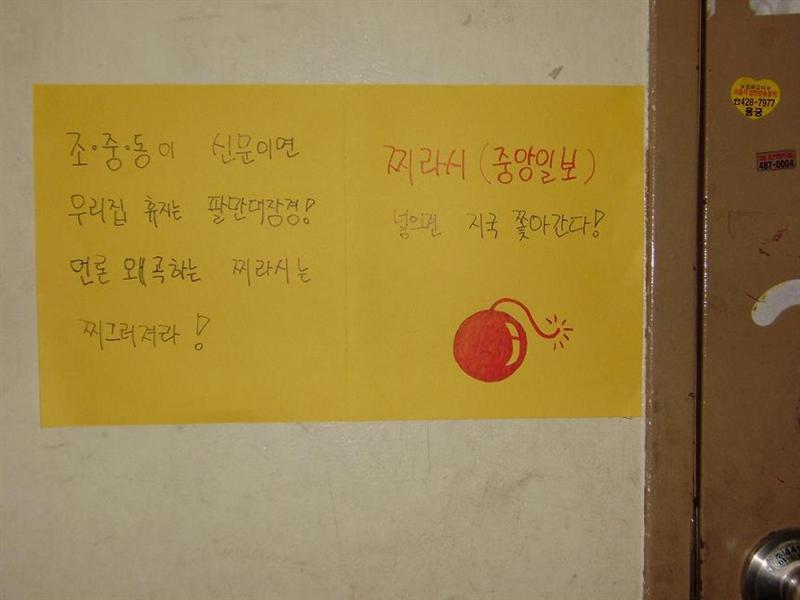 조·중·동이 신문이면
우리집 휴지는 팔만대장경!
언론 왜곡하는 찌라시는
찌그러져라!
찌라시 (중앙일보)
넣으면 지국 쫓아간다!
428-7977
용궁
487-0004